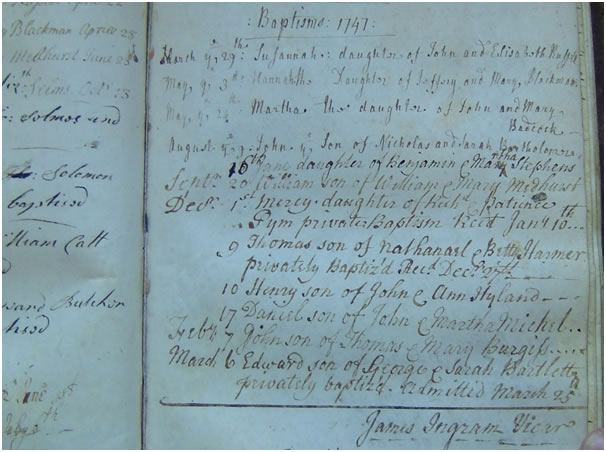 Blackman Aprill 28
Medhurst June 23
Octr. 18
Solmos and
Solomon
baptised
William Catt
Edward Butcher
: Baptisms: 1747:
March ye, 29th: Susannah: daughter of John and Elisabeth
May, ye 3th: Hannah the Daughter of Jeffery and Mary, Blackman
May, ye Martha the daughter of John and Mary
Badcock
August ye, 9 John ye, Son of Nicholas and Sarah Bartholomew
16th Jane daughter of Benjamin & Martha Stephens
Septr. 20 William son of William & Mary Medhurst
Decr. 1st Mercy daughter of Richd. & Patience
Pym private Baptism Rec'd Jany. 10th
9 Thomas son of Nathanael & Betty Harmer
privately Baptiz'd Recd. Decr. 9th
10 Henry son of John & Ann Hyland
17 Daniel son of John & Martha Michel..
Febry. 7 John son of Thomas & Mary Burgiss.....
March 6 Edward son of George & Sarah Bartlett
privately baptiz'd. Admitted March 25th
James Ingram Vicar